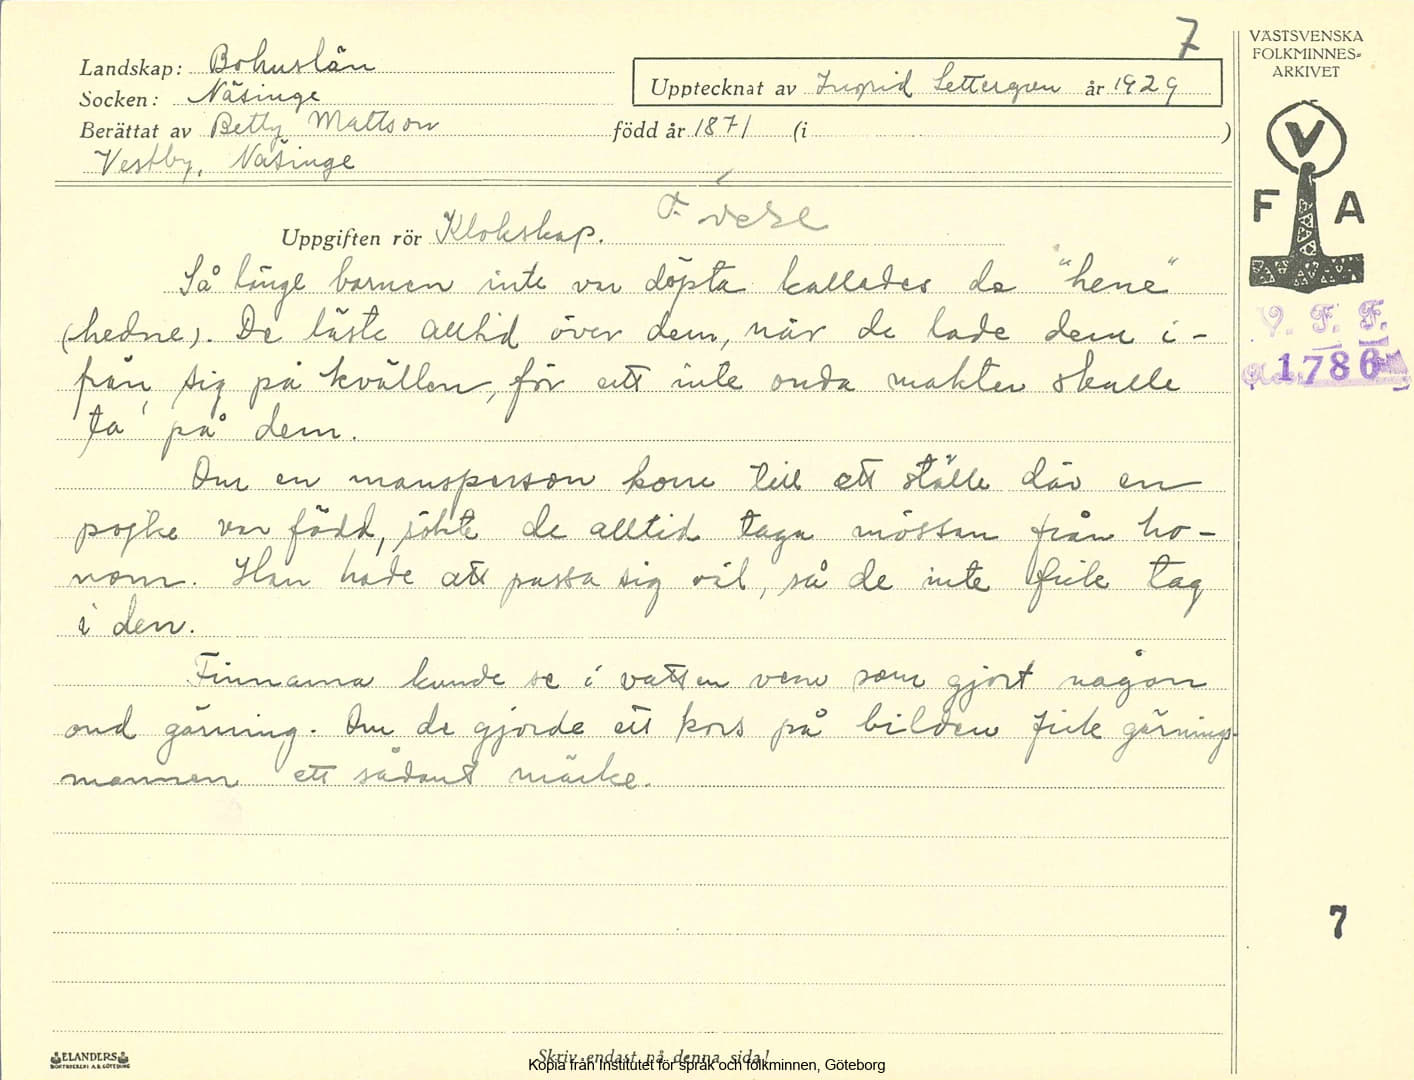 7
Landskap: Bohuslän
Socken: Näsinge
Upptecknat av Ingrid Settergren år 1929
Berättat av Betty Mattson född år 1871 (i )
Vestby, Näsinge
Uppgiften rör Klokskap.
Så länge barnen inte var döpta kallades de "hene"
(hedne). De läste alltid över dem, när de lade dem i-
från sig på kvällen, för att inte onda makter skulle
ta på dem.
Om en mansperson kom till ett ställe där en
pojke var född, sökte de alltid taga mössan från ho-
nom. Han hade att passa sig väl, så de inte fick tag
i den.
Finnarna kunde se i vatten vem som gjort någon
ond gärning. Om de gjorde ett kors på bilden fick gärnings-
mannen ett sådant märke.
Skriv endast på denna sida!
Kopia från Institutet för språk och folkminnen, Göteborg
ELANDERS
BOKTRYCKERI A.B. GÖTEBORG
VÄSTSVENSKA
FOLKMINNES-
ARKIVET
V
F A
V. F. F.
1786
7